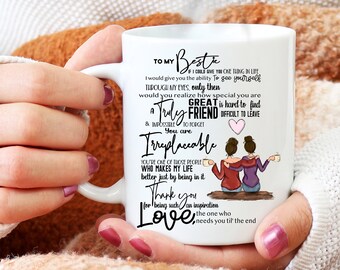 TO MY Bestie
IF I COULD GIVE YOU ONE THING IN LIFE
I would give you the ability TO See yourself
THROUGH MY EYES, only then
would you realize how special you are
A Truly GREAT FRIEND is hard to find
DIFFICULT TO LEAVE
& IMPOSSIBLE TO FORGET
You are
Irreplaceable
YOU'RE ONE OF THOSE PEOPLE
WHO MAKES MY LIFE
better just by being in it
Thank you
for being such an inspiration
Love, the one who
needs you til' the end